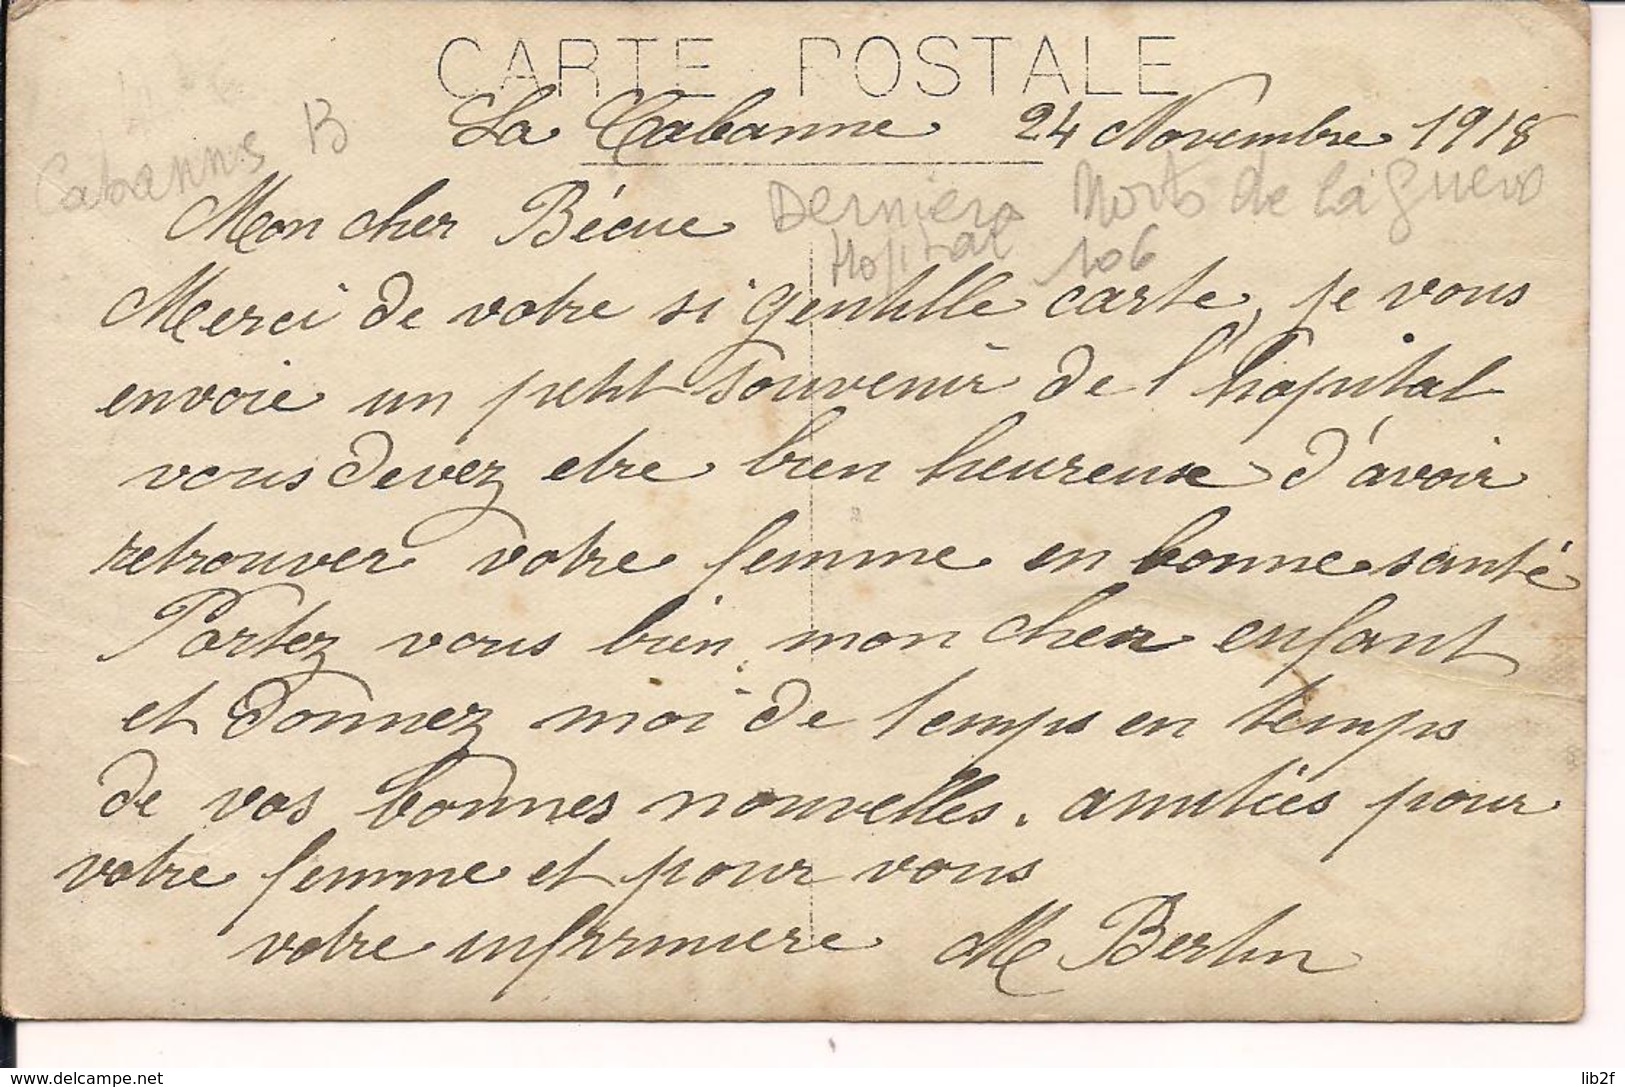 CARTE POSTALE
La Cabanne 24 Novembre 1918
Cabannes B
Mon cher Bécue
Derniers Morts de la guerre
Hopital 106
Merci de votre si gentille carte, je vous
envoie un petit souvenir de l'hopital
vous devez etre bien heureux d'avoir
retrouver votre femme en bonne santé
Portez vous bien mon cher enfant
et donnez moi de temps en temps
de vos bonnes nouvelles. amitiés pour
votre femme et pour vous
votre infirmiere M Bertin
www.delcampe.net
lib2f